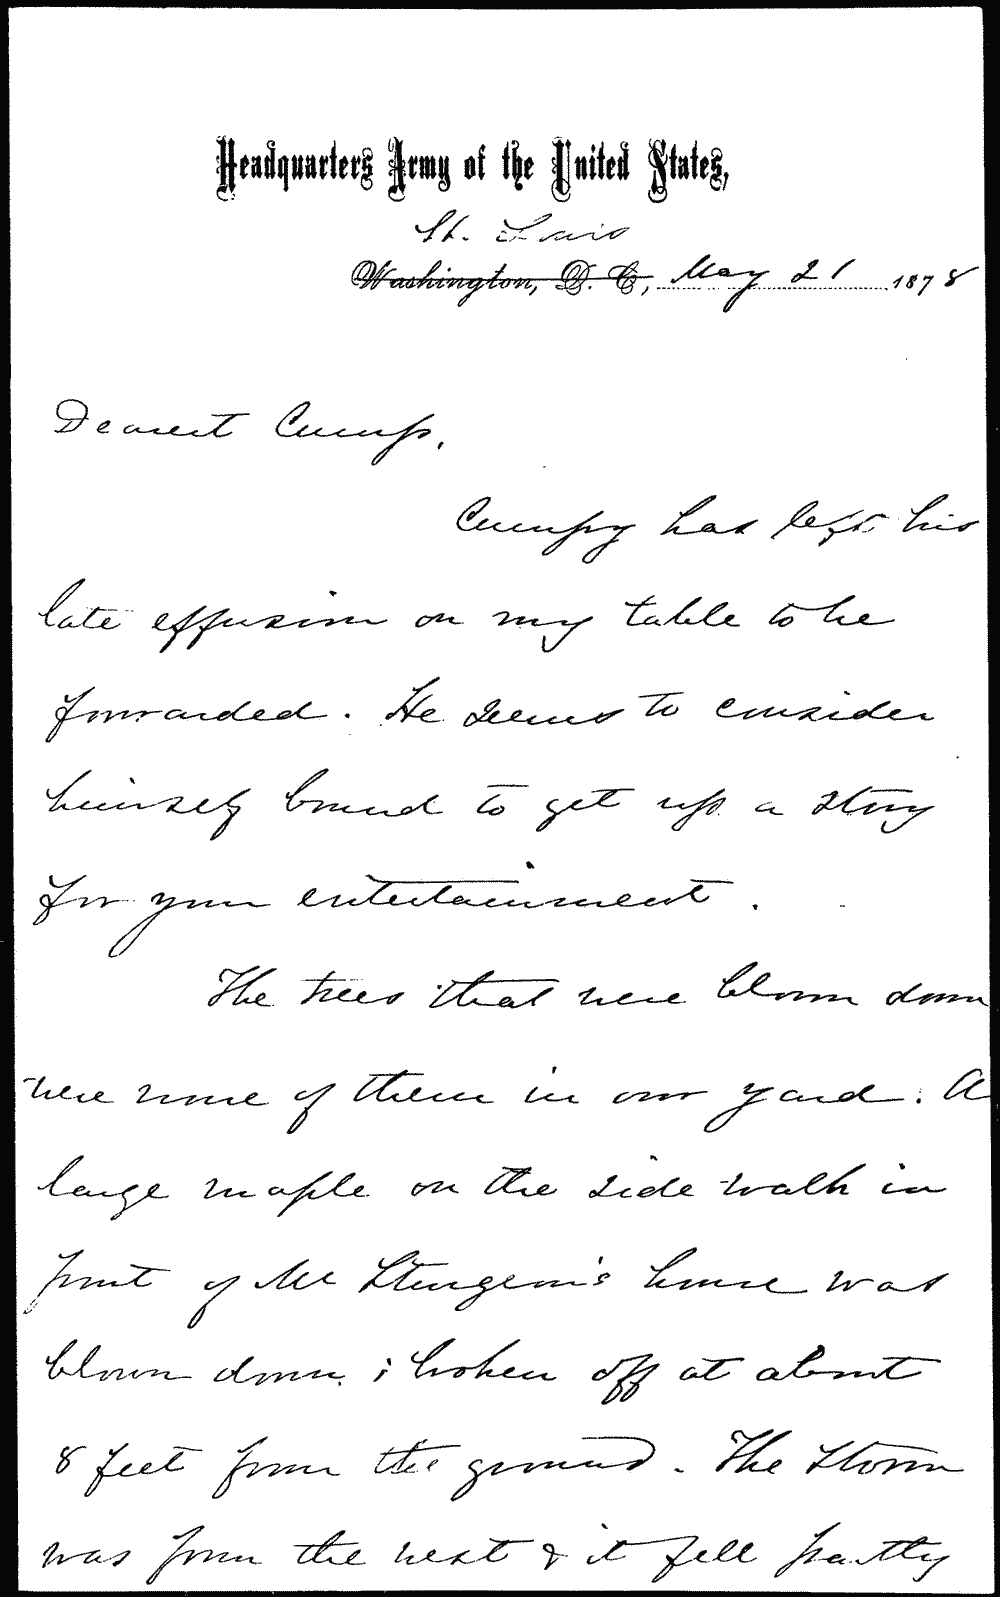 Headquarters Army of the United States,
St. Louis
Washington, D. C., May 21 1878
Dearest Cump,
Cumpy has left his
late effusion on my table to be
forwarded. He seems to consider
himself bound to get up a story
for your entertainment.
The trees that were blown down
were none of them in our yard. A
large maple on the side walk in
front of Mr Sturgeon's house was
blown down; broken off at about
8 feet from the ground. The storm
was from the west & it fell partly